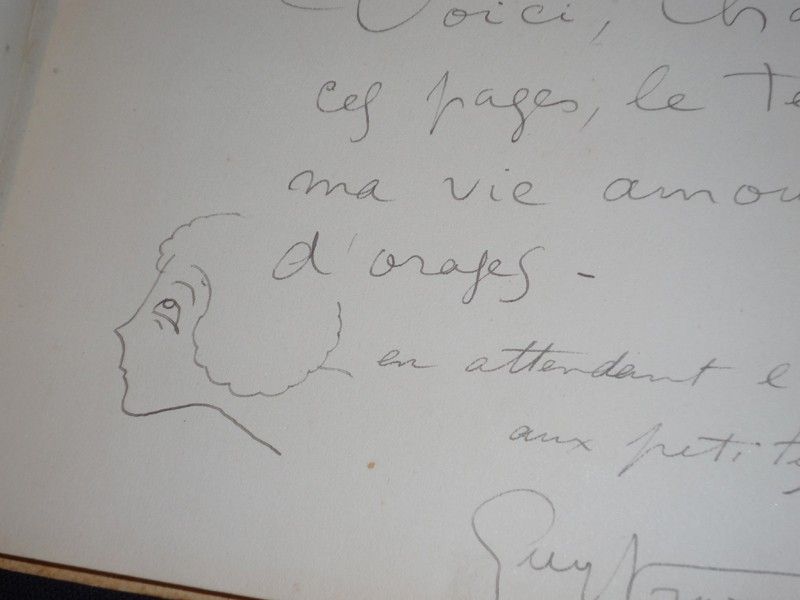 Voici, Cha
ces pages, le te
ma vie amou
d'orages -
en attendant l
aux petites
Guy